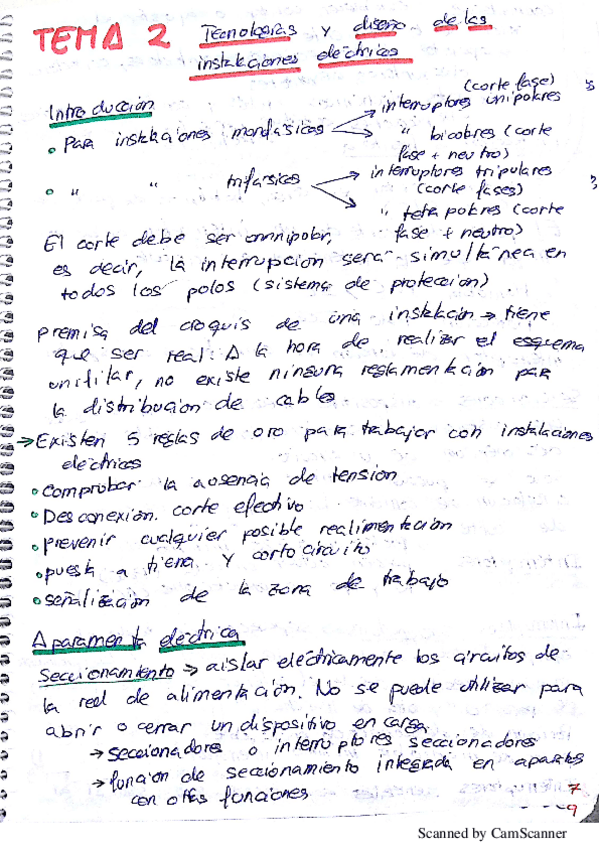 TEMA 2 Tecnologías y diseño de las
instalaciones eléctricas
Introducción
(corte fase)
• Para instalaciones monofásicas → interruptores unipolares
→ " bicobres (corte
fase + neutro)
• " " trifásicos → interruptores tripulares
(corte fases)
→ " tetrapolares (corte
fase + neutro)
El corte debe ser omnipolar,
es decir, la interrupción será simultánea en
todos los polos (sistema de protección).
premisa del croquis de una instalación → tiene
que ser real. A la hora de realizar el esquema
unifilar, no existe ninguna reglamentación para
la distribución de cables.
→ Existen 5 reglas de oro para trabajar con instalaciones
eléctricas
• comprobar la ausencia de tensión
• Desconexión. corte efectivo
• prevenir cualquier posible realimentación
• puesta a tierra y cortocircuito
• señalización de la zona de trabajo
Aparamenta eléctrica
Seccionamiento → aislar eléctricamente los circuitos de
la red de alimentación. No se puede utilizar para
abrir o cerrar un dispositivo en carga.
→ seccionadores o interruptores seccionadores
→ función de seccionamiento integrada en aparatos
con otras funciones
7
9
Scanned by CamScanner